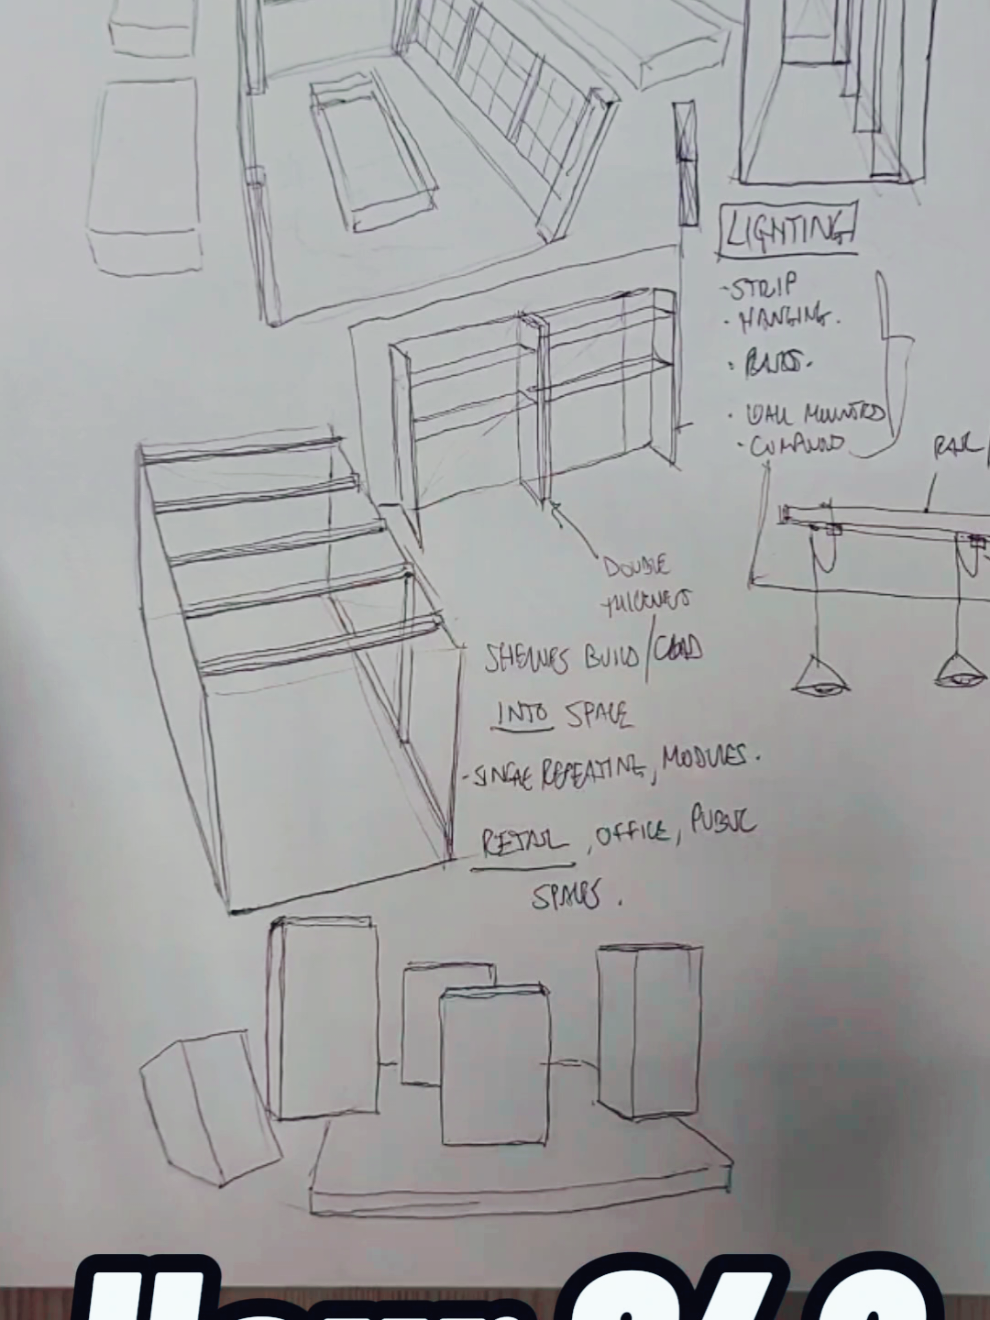 LIGHTING
- STRIP
- HANGING.
- WALL MOUNTED
RAIL/
DOUBLE
THICKNESS
SHELVES BUILD/CLAD
INTO SPACE
- SINGLE REPEATING, MODULES.
RETAIL, OFFICE, PUBLIC
SPACES.